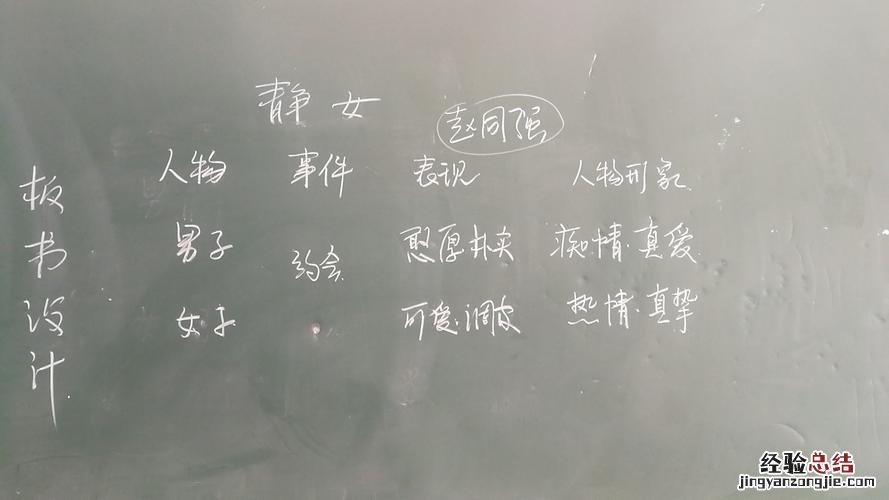 静女
赵同强
板书设计
人物 事件 表现 人物形象
男子 约会 憨厚朴实 痴情·真爱
女子 可爱·调皮 热情·真挚
经验总结
jingyanzongjie.com